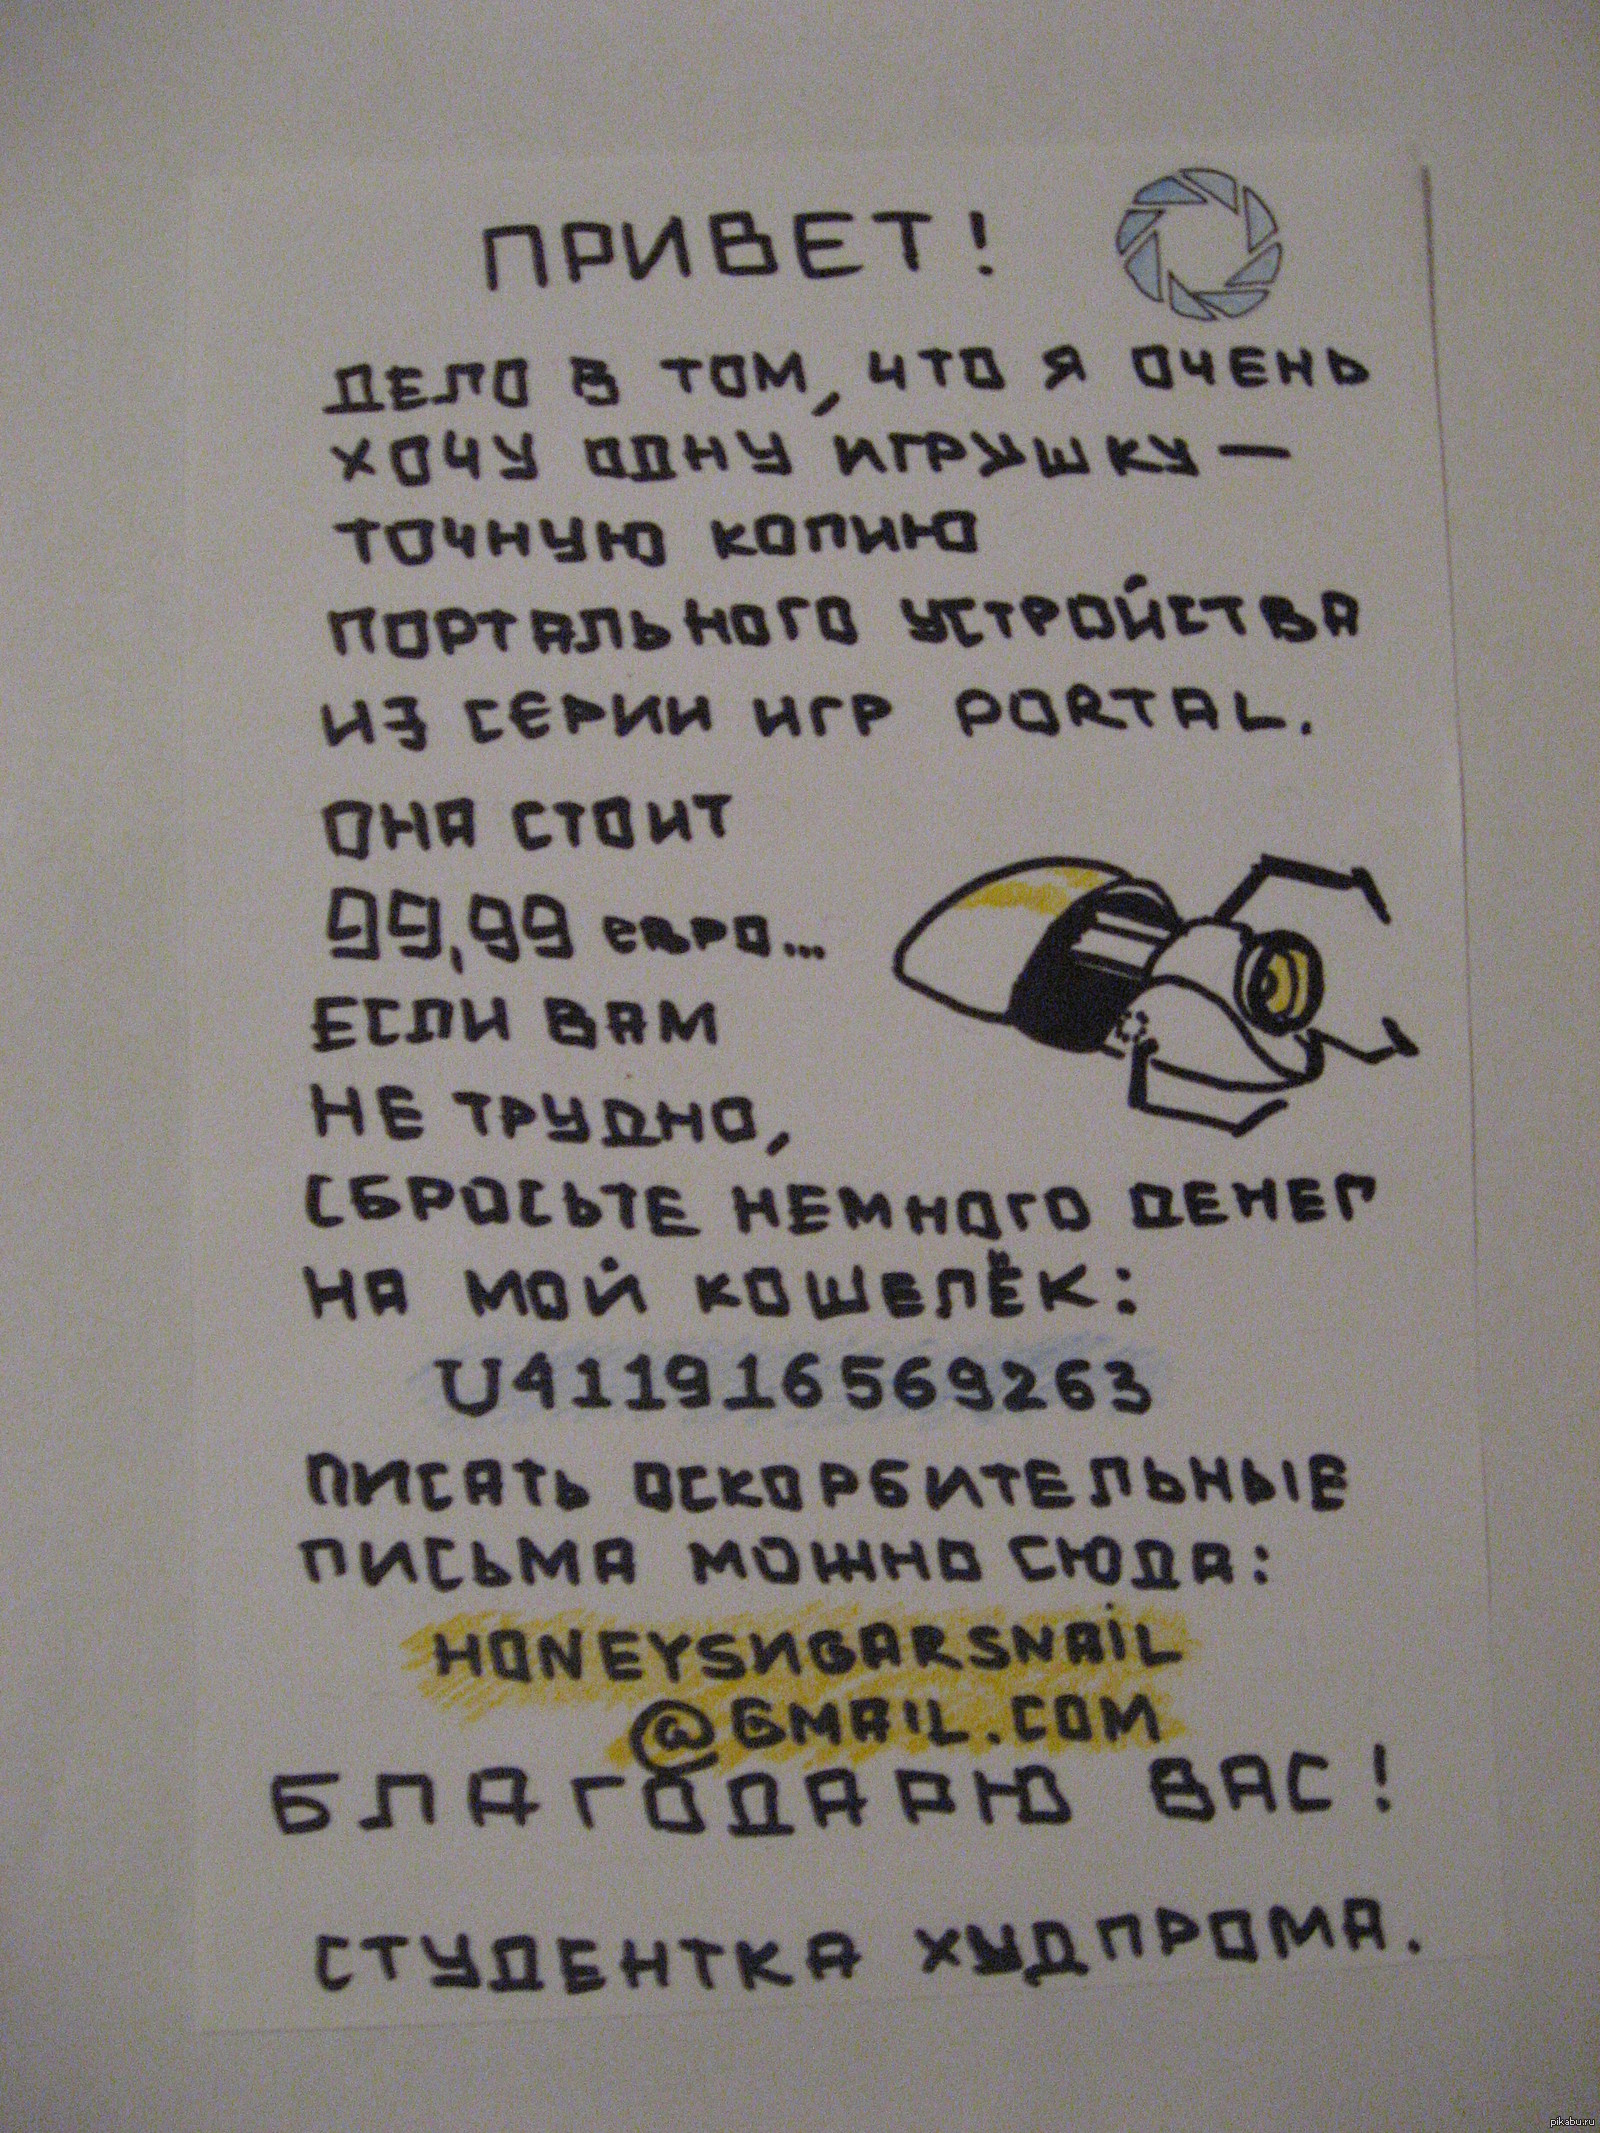 ПРИВЕТ!
ДЕЛО В ТОМ, ЧТО Я ОЧЕНЬ
ХОЧУ ОДНУ ИГРУШКУ —
ТОЧНУЮ КОПИЮ
ПОРТАЛЬНОГО УСТРОЙСТВА
ИЗ СЕРИИ ИГР PORTAL.
ОНА СТОИТ
99,99 евро...
ЕСЛИ ВАМ
НЕ ТРУДНО,
СБРОСЬТЕ НЕМНОГО ДЕНЕГ
НА МОЙ КОШЕЛЁК:
U411916569263
ПИСАТЬ ОСКОРБИТЕЛЬНЫЕ
ПИСЬМА МОЖНО СЮДА:
HONEYSUGARSNAiL
@GMAIL.COM
БЛАГОДАРЮ ВАС!
СТУДЕНТКА ХУДПРОМА.
pikabu.ru